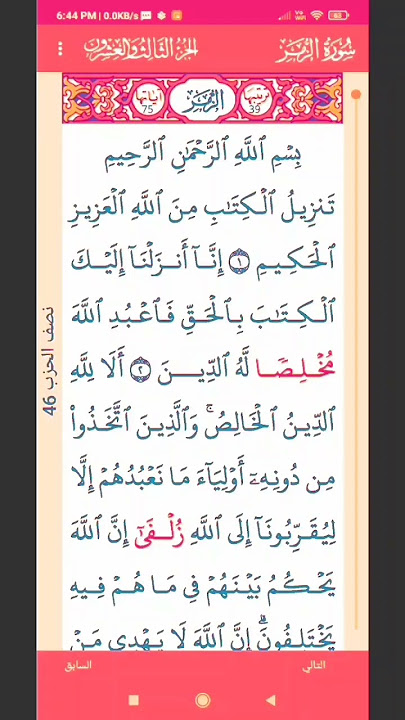 6:44 PM | 0.0KB/s
83
سُورَةُ الزُّمَرِ
الجُزْءُ الثَّالِثُ وَالعِشْرُونَ
ترتيبها
39
الزُّمَرِ
آياتها
75
بِسْمِ ٱللَّهِ ٱلرَّحْمَٰنِ ٱلرَّحِيمِ
تَنزِيلُ ٱلْكِتَٰبِ مِنَ ٱللَّهِ ٱلْعَزِيزِ
ٱلْحَكِيمِ ١ إِنَّآ أَنزَلْنَآ إِلَيْكَ
ٱلْكِتَٰبَ بِٱلْحَقِّ فَٱعْبُدِ ٱللَّهَ
مُخْلِصًا لَّهُ ٱلدِّينَ ٢ أَلَا لِلَّهِ
ٱلدِّينُ ٱلْخَالِصُ ۚ وَٱلَّذِينَ ٱتَّخَذُوا۟
مِن دُونِهِۦٓ أَوْلِيَآءَ مَا نَعْبُدُهُمْ إِلَّا
لِيُقَرِّبُونَآ إِلَى ٱللَّهِ زُلْفَىٰٓ إِنَّ ٱللَّهَ
يَحْكُمُ بَيْنَهُمْ فِى مَا هُمْ فِيهِ
يَخْتَلِفُونَ ۗ إِنَّ ٱللَّهَ لَا يَهْدِى مَنْ
نصف الحزب 46
التالي
السابق